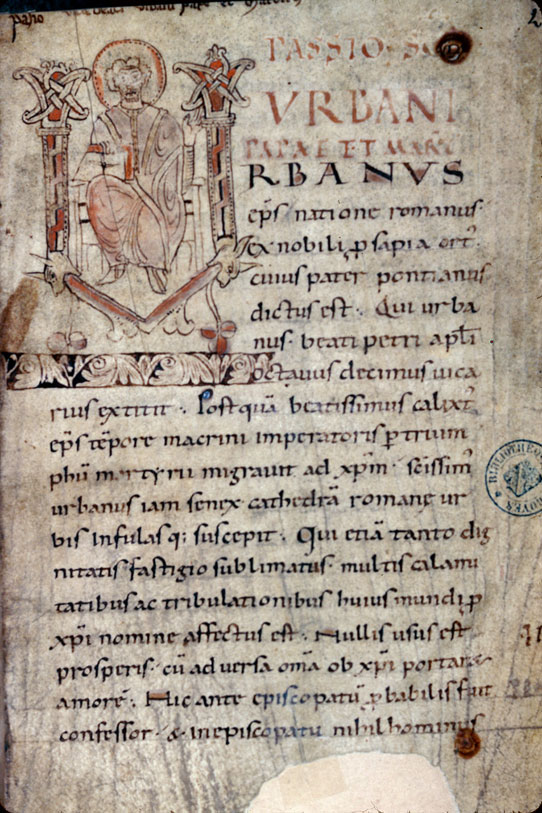 PASSIO SCI
VRBANI
PAPAE ET MARTY
RBANVS
ep̄s natione romanus.
ex nobili ꝓsapia ort᷒.
cuius pater pontianus
dictus est. Qui urba
nus. beati petri apl̄i
octauus decimus uica
rius extitit. Postquā beatissimus calixt᷒
ep̄s tēpore macrini imperatoris ꝑ trium
phū martyrii migrauit ad xp̄m. scīssim᷒
urbanus iam senex cathedrā romanę ur
bis infulasq; suscepit. Qui etiā tanto dig
nitatis fastigio sublimatus. multis calami
tatibus ac tribulationibus huius mundi ꝓ
xp̄i nomine affectus est. Nullis usus est
prosperis. cū aduersa om̄a ob xp̄i portaret
amorē. Hic ante episcopatū ꝓbabilis fuit
confessor. & in episcopatu nihil hominus